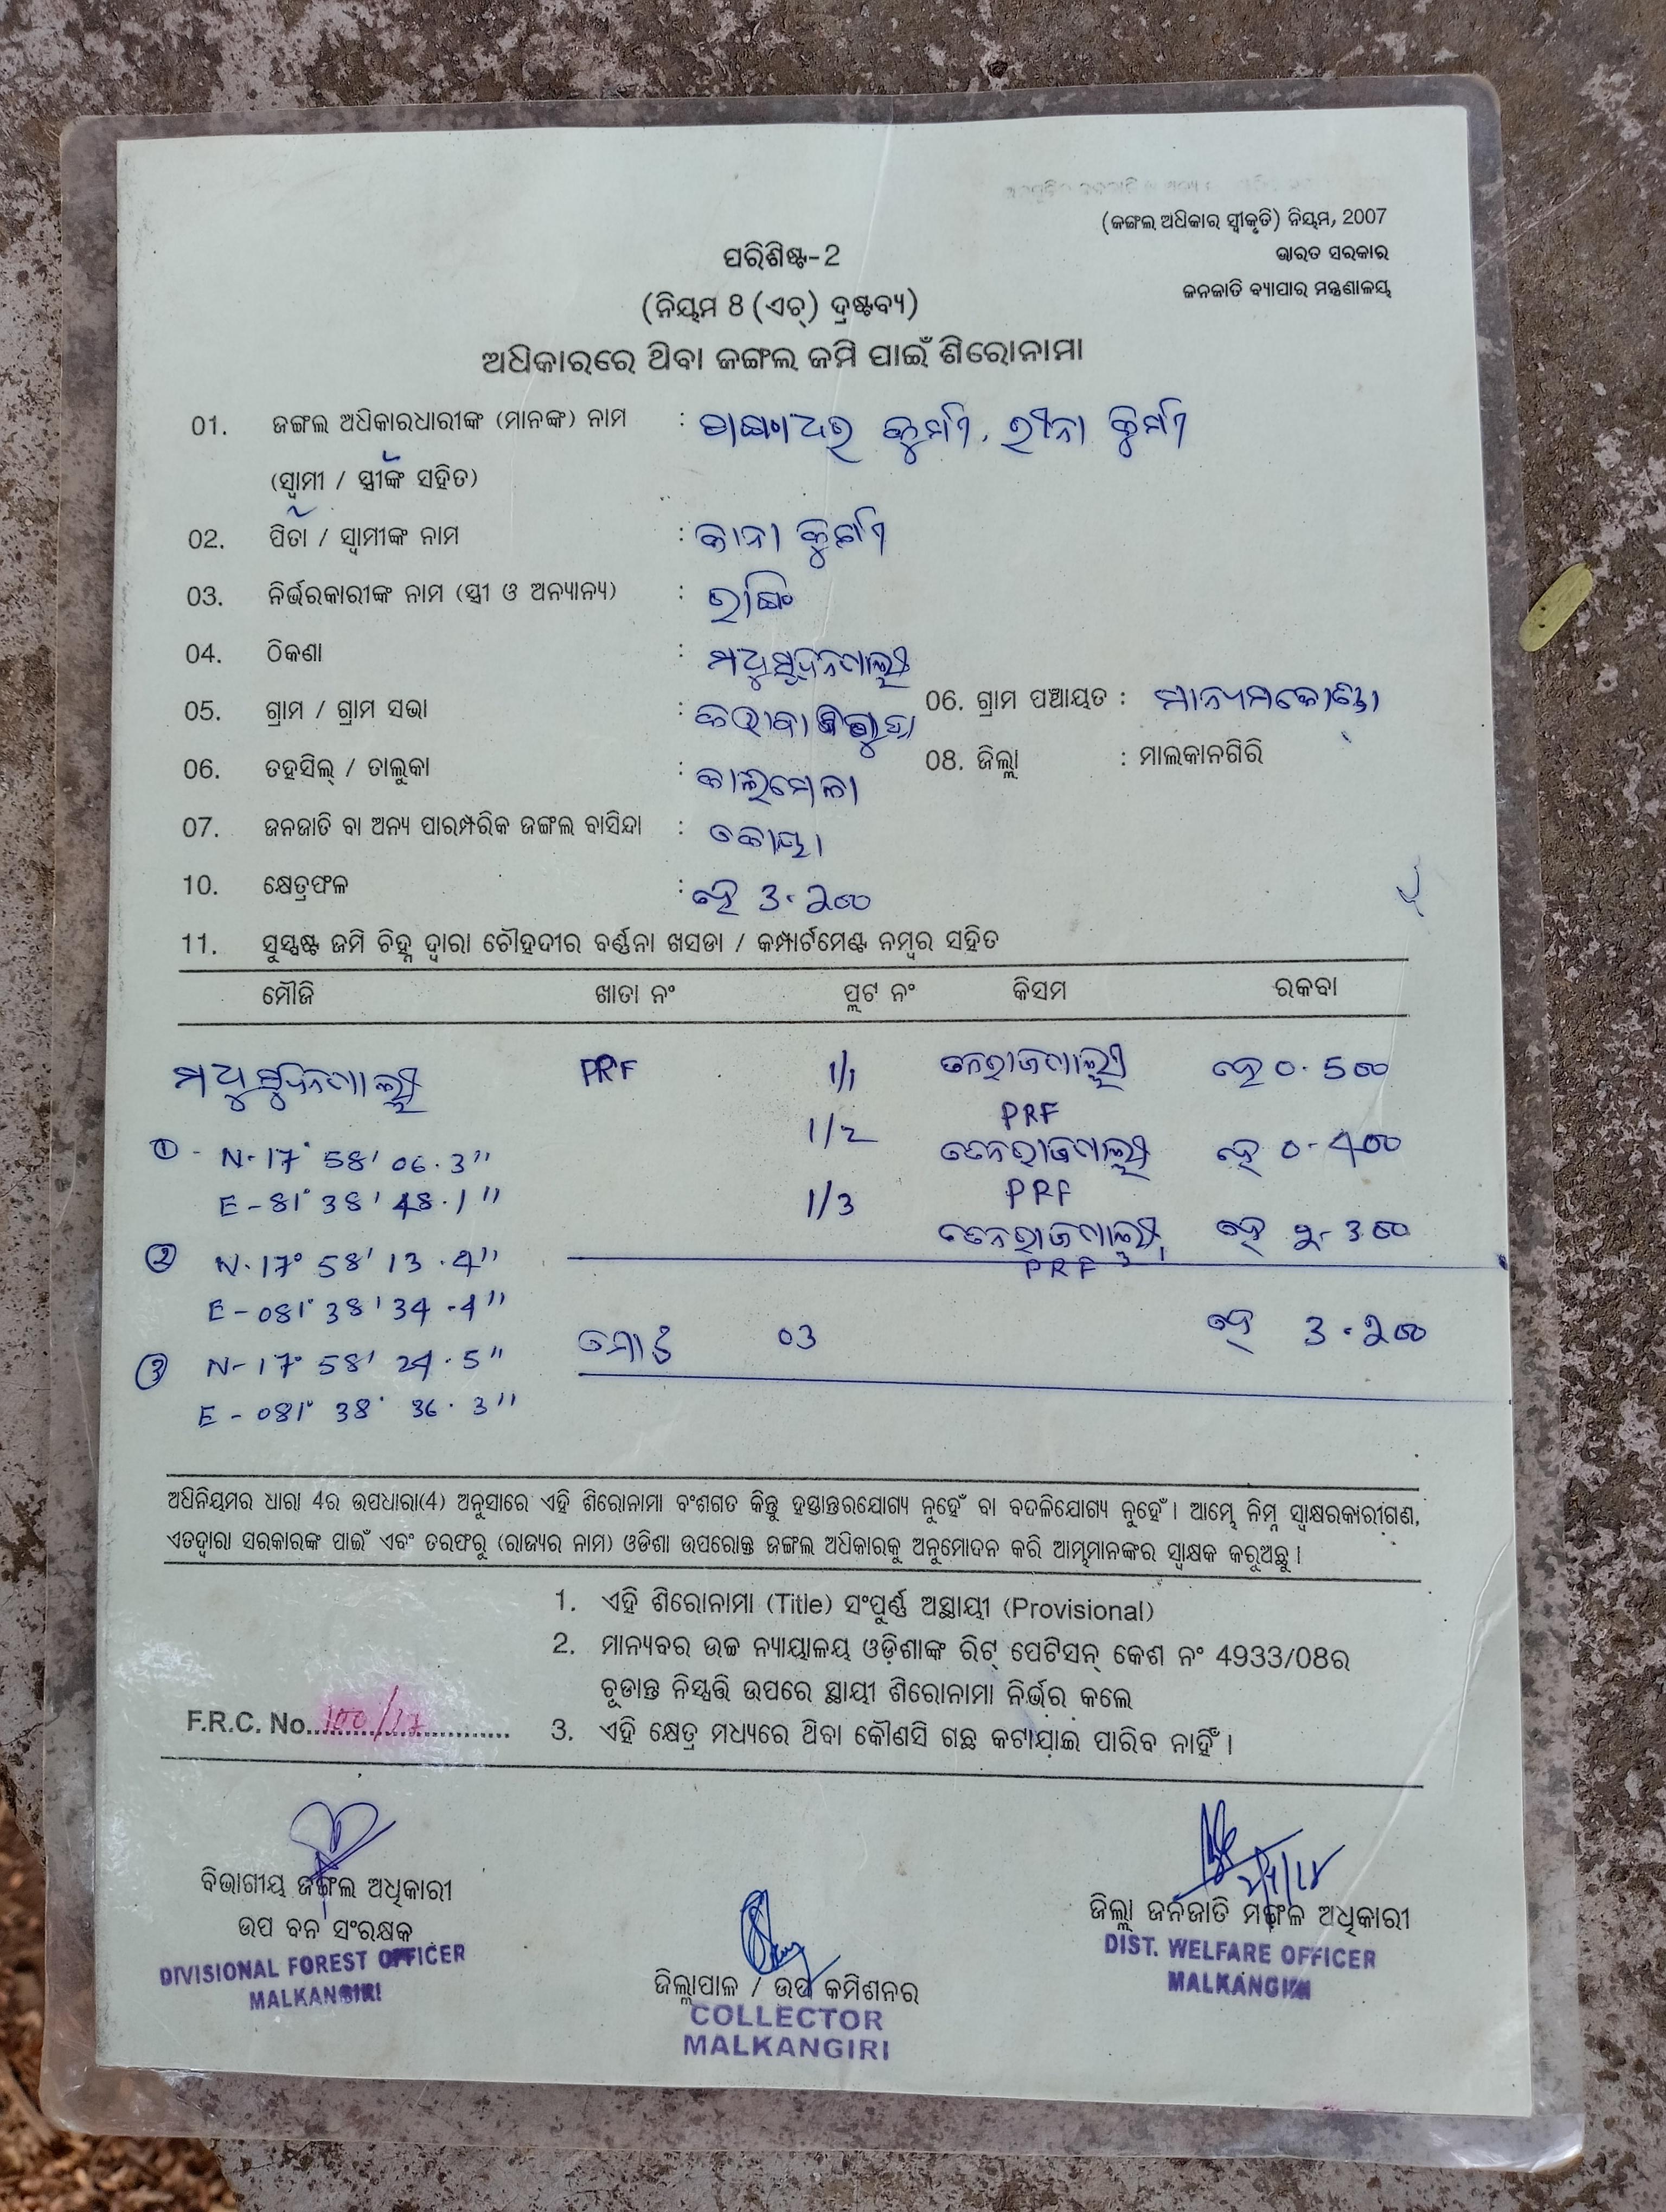 (ଜଙ୍ଗଲ ଅଧିକାର ସ୍ୱୀକୃତି) ନିୟମ, 2007
ଭାରତ ସରକାର
ଜନଜାତି ବ୍ୟାପାର ମନ୍ତ୍ରଣାଳୟ
ପରିଶିଷ୍ଟ-2
(ନିୟମ 8 (ଏଚ୍) ଦ୍ରଷ୍ଟବ୍ୟ)
ଅଧିକାରରେ ଥିବା ଜଙ୍ଗଲ ଜମି ପାଇଁ ଶିରୋନାମା
01. ଜଙ୍ଗଲ ଅଧିକାରଧାରୀଙ୍କ (ମାନଙ୍କ) ନାମ : କୁର୍ମୀ, କୁର୍ମୀ
(ସ୍ୱାମୀ / ସ୍ତ୍ରୀଙ୍କ ସହିତ)
02. ପିତା / ସ୍ୱାମୀଙ୍କ ନାମ :
03. ନିର୍ଭରକାରୀଙ୍କ ନାମ (ସ୍ତ୍ରୀ ଓ ଅନ୍ୟାନ୍ୟ) :
04. ଠିକଣା :
05. ଗ୍ରାମ / ଗ୍ରାମ ସଭା : 06. ଗ୍ରାମ ପଞ୍ଚାୟତ : ମାନ୍ୟମକୋଣ୍ଡା
06. ତହସିଲ୍ / ତାଲୁକା : କାଲିମେଳା 08. ଜିଲ୍ଲା : ମାଲକାନଗିରି
07. ଜନଜାତି ବା ଅନ୍ୟ ପାରମ୍ପରିକ ଜଙ୍ଗଲ ବାସିନ୍ଦା : କୋୟା
10. କ୍ଷେତ୍ରଫଳ : ହେ 3.200
11. ସୁସ୍ପଷ୍ଟ ଜମି ଚିହ୍ନ ଦ୍ୱାରା ଚୌହଦୀର ବର୍ଣ୍ଣନା ଖସଡା / କମ୍ପାର୍ଟମେଣ୍ଟ ନମ୍ବର ସହିତ
ମୌଜି ଖାତା ନଂ ପ୍ଲଟ ନଂ କିସମ ରକବା
PRF 1/1 ହେ 0.500
PRF
1/2 ହେ 0.400
① - N-17° 58' 06.3"
E-81° 38' 48.1"
1/3 PRF
ହେ 2.300
PRF
② N-17° 58' 13.4"
E-081° 38' 34.4"
ମୋଟ 03 ହେ 3.200
③ N-17° 58' 24.5"
E-081° 38' 36.3"
ଅଧିନିୟମର ଧାରା 4ର ଉପଧାରା(4) ଅନୁସାରେ ଏହି ଶିରୋନାମା ବଂଶଗତ କିନ୍ତୁ ହସ୍ତାନ୍ତରଯୋଗ୍ୟ ନୁହେଁ ବା ବଦଳିଯୋଗ୍ୟ ନୁହେଁ। ଆମ୍ଭେ ନିମ୍ନ ସ୍ୱାକ୍ଷରକାରୀଗଣ,
ଏତଦ୍ୱାରା ସରକାରଙ୍କ ପାଇଁ ଏବଂ ତରଫରୁ (ରାଜ୍ୟର ନାମ) ଓଡିଶା ଉପରୋକ୍ତ ଜଙ୍ଗଲ ଅଧିକାରକୁ ଅନୁମୋଦନ କରି ଆମ୍ଭମାନଙ୍କର ସ୍ୱାକ୍ଷକ କରୁଅଛୁ।
1. ଏହି ଶିରୋନାମା (Title) ସଂପୂର୍ଣ୍ଣ ଅସ୍ଥାୟୀ (Provisional)
2. ମାନ୍ୟବର ଉଚ୍ଚ ନ୍ୟାୟାଳୟ ଓଡ଼ିଶାଙ୍କ ରିଟ୍ ପେଟିସନ୍ କେଶ ନଂ 4933/08ର
ଚୂଡାନ୍ତ ନିସ୍ପତ୍ତି ଉପରେ ସ୍ଥାୟୀ ଶିରୋନାମା ନିର୍ଭର କଲେ
F.R.C. No. 100/17
3. ଏହି କ୍ଷେତ୍ର ମଧ୍ୟରେ ଥିବା କୌଣସି ଗଛ କଟାଯାଇ ପାରିବ ନାହିଁ।
ବିଭାଗୀୟ ଜଙ୍ଗଲ ଅଧିକାରୀ
ଉପ ବନ ସଂରକ୍ଷକ
DIVISIONAL FOREST OFFICER
MALKANGIRI
ଜିଲ୍ଲାପାଳ / ଉପ କମିଶନର
COLLECTOR
MALKANGIRI
ଜିଲ୍ଲା ଜନଜାତି ମଙ୍ଗଳ ଅଧିକାରୀ
DIST. WELFARE OFFICER
MALKANGIRI